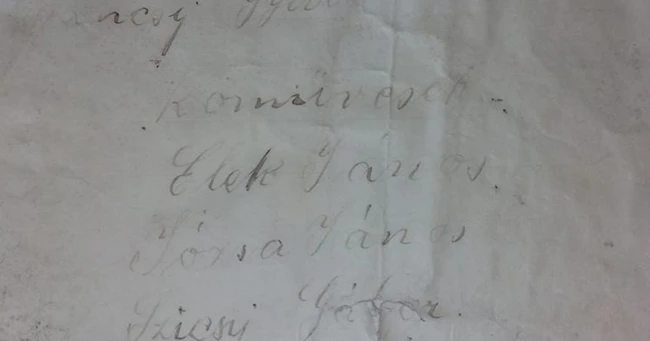 kömüvesek.
Elek János.
Józsa János
Szicsj Gábor.